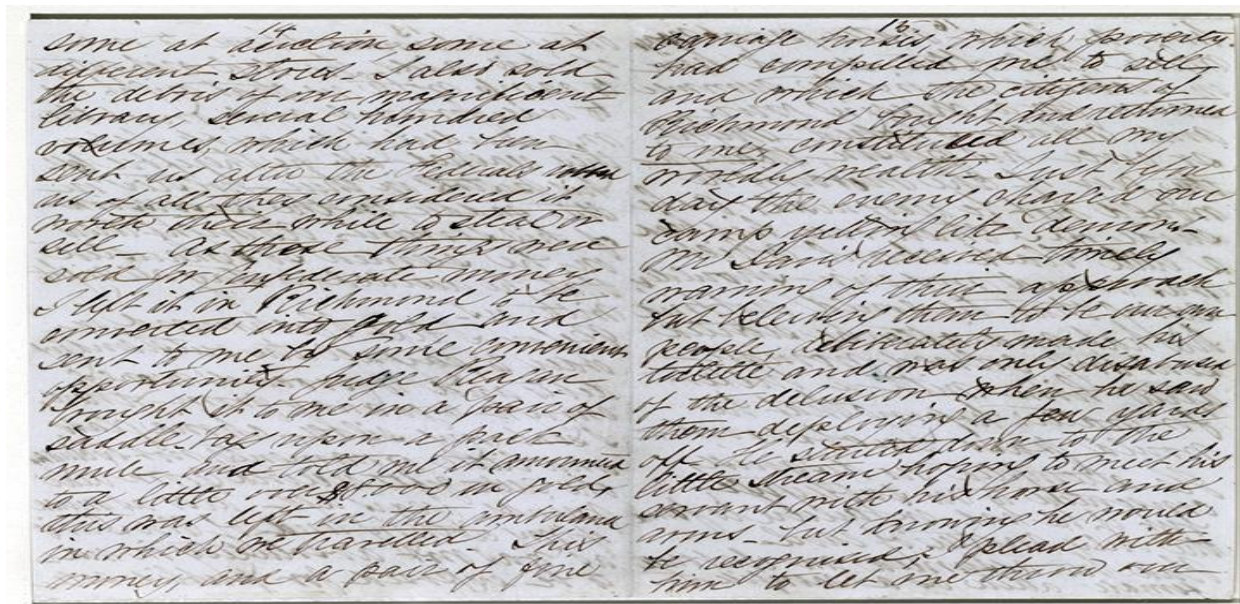 14
some at auction some at
different stores. I also sold
the debris of our magnificent
library, several hundred
volumes which had been
sent us after the Federals
us of all they considered it
worth their while to steal or
sell - As these things were
sold for Confederate money
I left it in Richmond to be
converted into gold and
sent to me by some convenient
opportunity. Judge Reagan
brought it to me in a pair of
saddle bags upon a pack
mule and told me it amounted
to a little over $8000 in gold,
this was left in the ambulance
in which we travelled. This
money, and a pair of fine
15
carriage horses which poverty
had compelled me to sell
and which the citizens of
Richmond bought and returned
to me, constituted all my
worldly wealth. Just before
day the enemy charged our
camp yelling like demons.
Mr Davis received timely
warning of their approach
but believing them to be our own
people deliberately made his
toilette and was only disabused
of the delusion when he saw
them deploying a few yards
off. He started down to the
little stream hoping to meet his
servant with his horse and
arms - but knowing he would
be recognised, I plead with
him to let me throw over